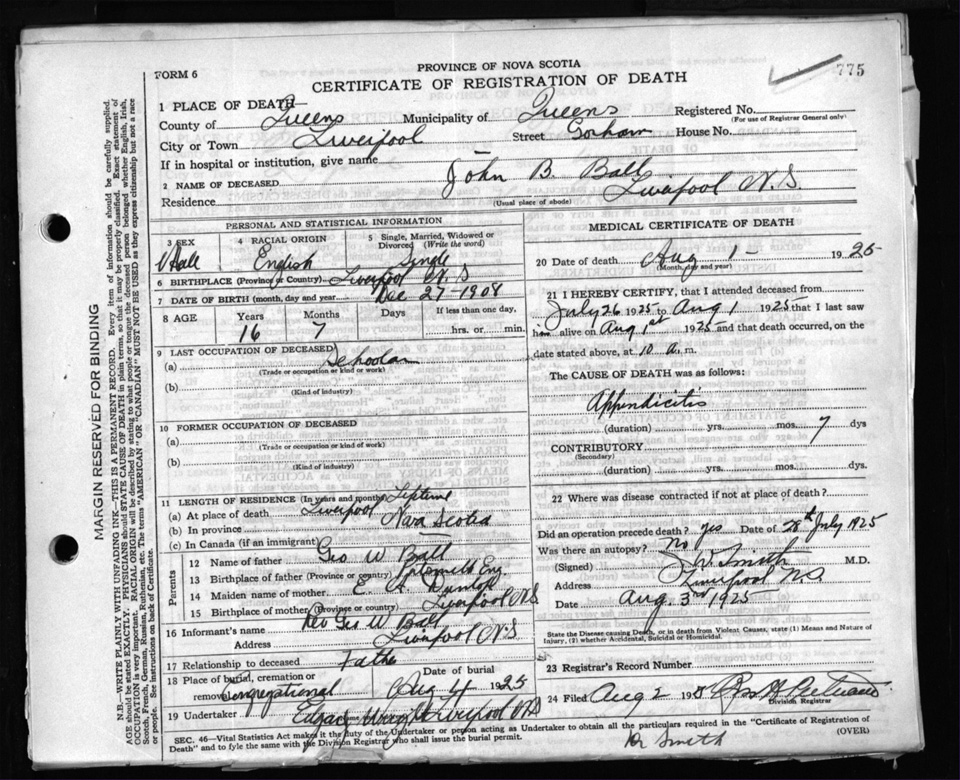 775
PROVINCE OF NOVA SCOTIA
FORM 6
CERTIFICATE OF REGISTRATION OF DEATH
1 PLACE OF DEATH—
County of Queens Municipality of Queens Registered No.
(For use of Registrar General only)
City or Town Liverpool Street Gorham House No.
If in hospital or institution, give name
2 NAME OF DECEASED John B. Ball
Residence Liverpool N.S.
(Usual place of abode)
PERSONAL AND STATISTICAL INFORMATION
3 SEX Male
4 RACIAL ORIGIN English
5 Single, Married, Widowed or Divorced (Write the word) Single
6 BIRTHPLACE (Province or Country) Liverpool N.S
7 DATE OF BIRTH (month, day and year) Dec 27-1908
8 AGE Years 16 Months 7 Days If less than one day, hrs. or min.
9 LAST OCCUPATION OF DECEASED
(a) Scholar
(Trade or occupation or kind or work)
(b)
(Kind of industry)
10 FORMER OCCUPATION OF DECEASED
(a)
(Trade or occupation or kind of work)
(b)
(Kind of industry)
11 LENGTH OF RESIDENCE (In years and months) Lifetime
(a) At place of death Liverpool
(b) In province Nova Scotia
(c) In Canada (if an immigrant)
Parents
12 Name of father Geo W Ball
13 Birthplace of father (Province or country) Eng
14 Maiden name of mother E.
15 Birthplace of mother (Province or country) Liverpool N.S
16 Informant's name Rev Geo W Ball
Address Liverpool N.S
17 Relationship to deceased Father
18 Place of burial, cremation or removal Congregational Date of burial Aug 4 1925
19 Undertaker Liverpool N.S
MEDICAL CERTIFICATE OF DEATH
20 Date of death Aug 1 - 1925
(Month, day and year)
21 I HEREBY CERTIFY, that I attended deceased from
July 26 1925 to Aug 1 1925 that I last saw
him alive on Aug 1st 1925 and that death occurred, on the
date stated above, at 10 a. m.
The CAUSE OF DEATH was as follows:
Appendicitis
(duration) yrs. mos. 7 dys
CONTRIBUTORY
(Secondary)
(duration) yrs. mos. dys.
22 Where was disease contracted if not at place of death?
Did an operation precede death? yes Date of 28th July 1925
Was there an autopsy? No
(Signed) Smith M.D.
Address Liverpool N.S.
Date Aug. 3rd 1925
State the Disease causing Death, or in death from Violent Causes, state (1) Means and Nature of
Injury, (2) whether Accidental, Suicidal or Homicidal.
23 Registrar's Record Number
24 Filed Aug 2 192
Division Registrar
SEC. 46—Vital Statistics Act makes it the duty of the Undertaker or person acting as Undertaker to obtain all the particulars required in the "Certificate of Registration of
Death" and to fyle the same with the Division Registrar who shall issue the burial permit.
(OVER)
Dr Smith
MARGIN RESERVED FOR BINDING
N.B.—WRITE PLAINLY WITH UNFADING INK—THIS IS A PERMANENT RECORD. Every item of information should be carefully supplied.
AGE should be stated EXACTLY. PHYSICIANS should STATE CAUSE OF DEATH in plain terms, so that it may be properly classified. Exact statement of
OCCUPATION is very important. RACIAL ORIGIN will be described by stating to what people or tongue the deceased person belonged whether English, Irish,
Scotch, French, German, Russian, Ruthenian, etc. The terms "AMERICAN" OR "CANADIAN" MUST NOT BE USED as they express citizenship but not a race
or people. See instructions on back of Certificate.